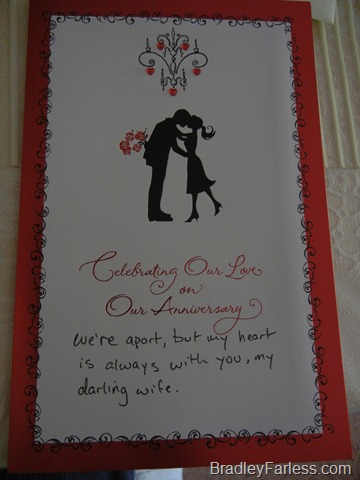 Celebrating Our Love
on
Our Anniversary
We're apart, but my heart
is always with you, my
darling wife.
BradleyFarless.com